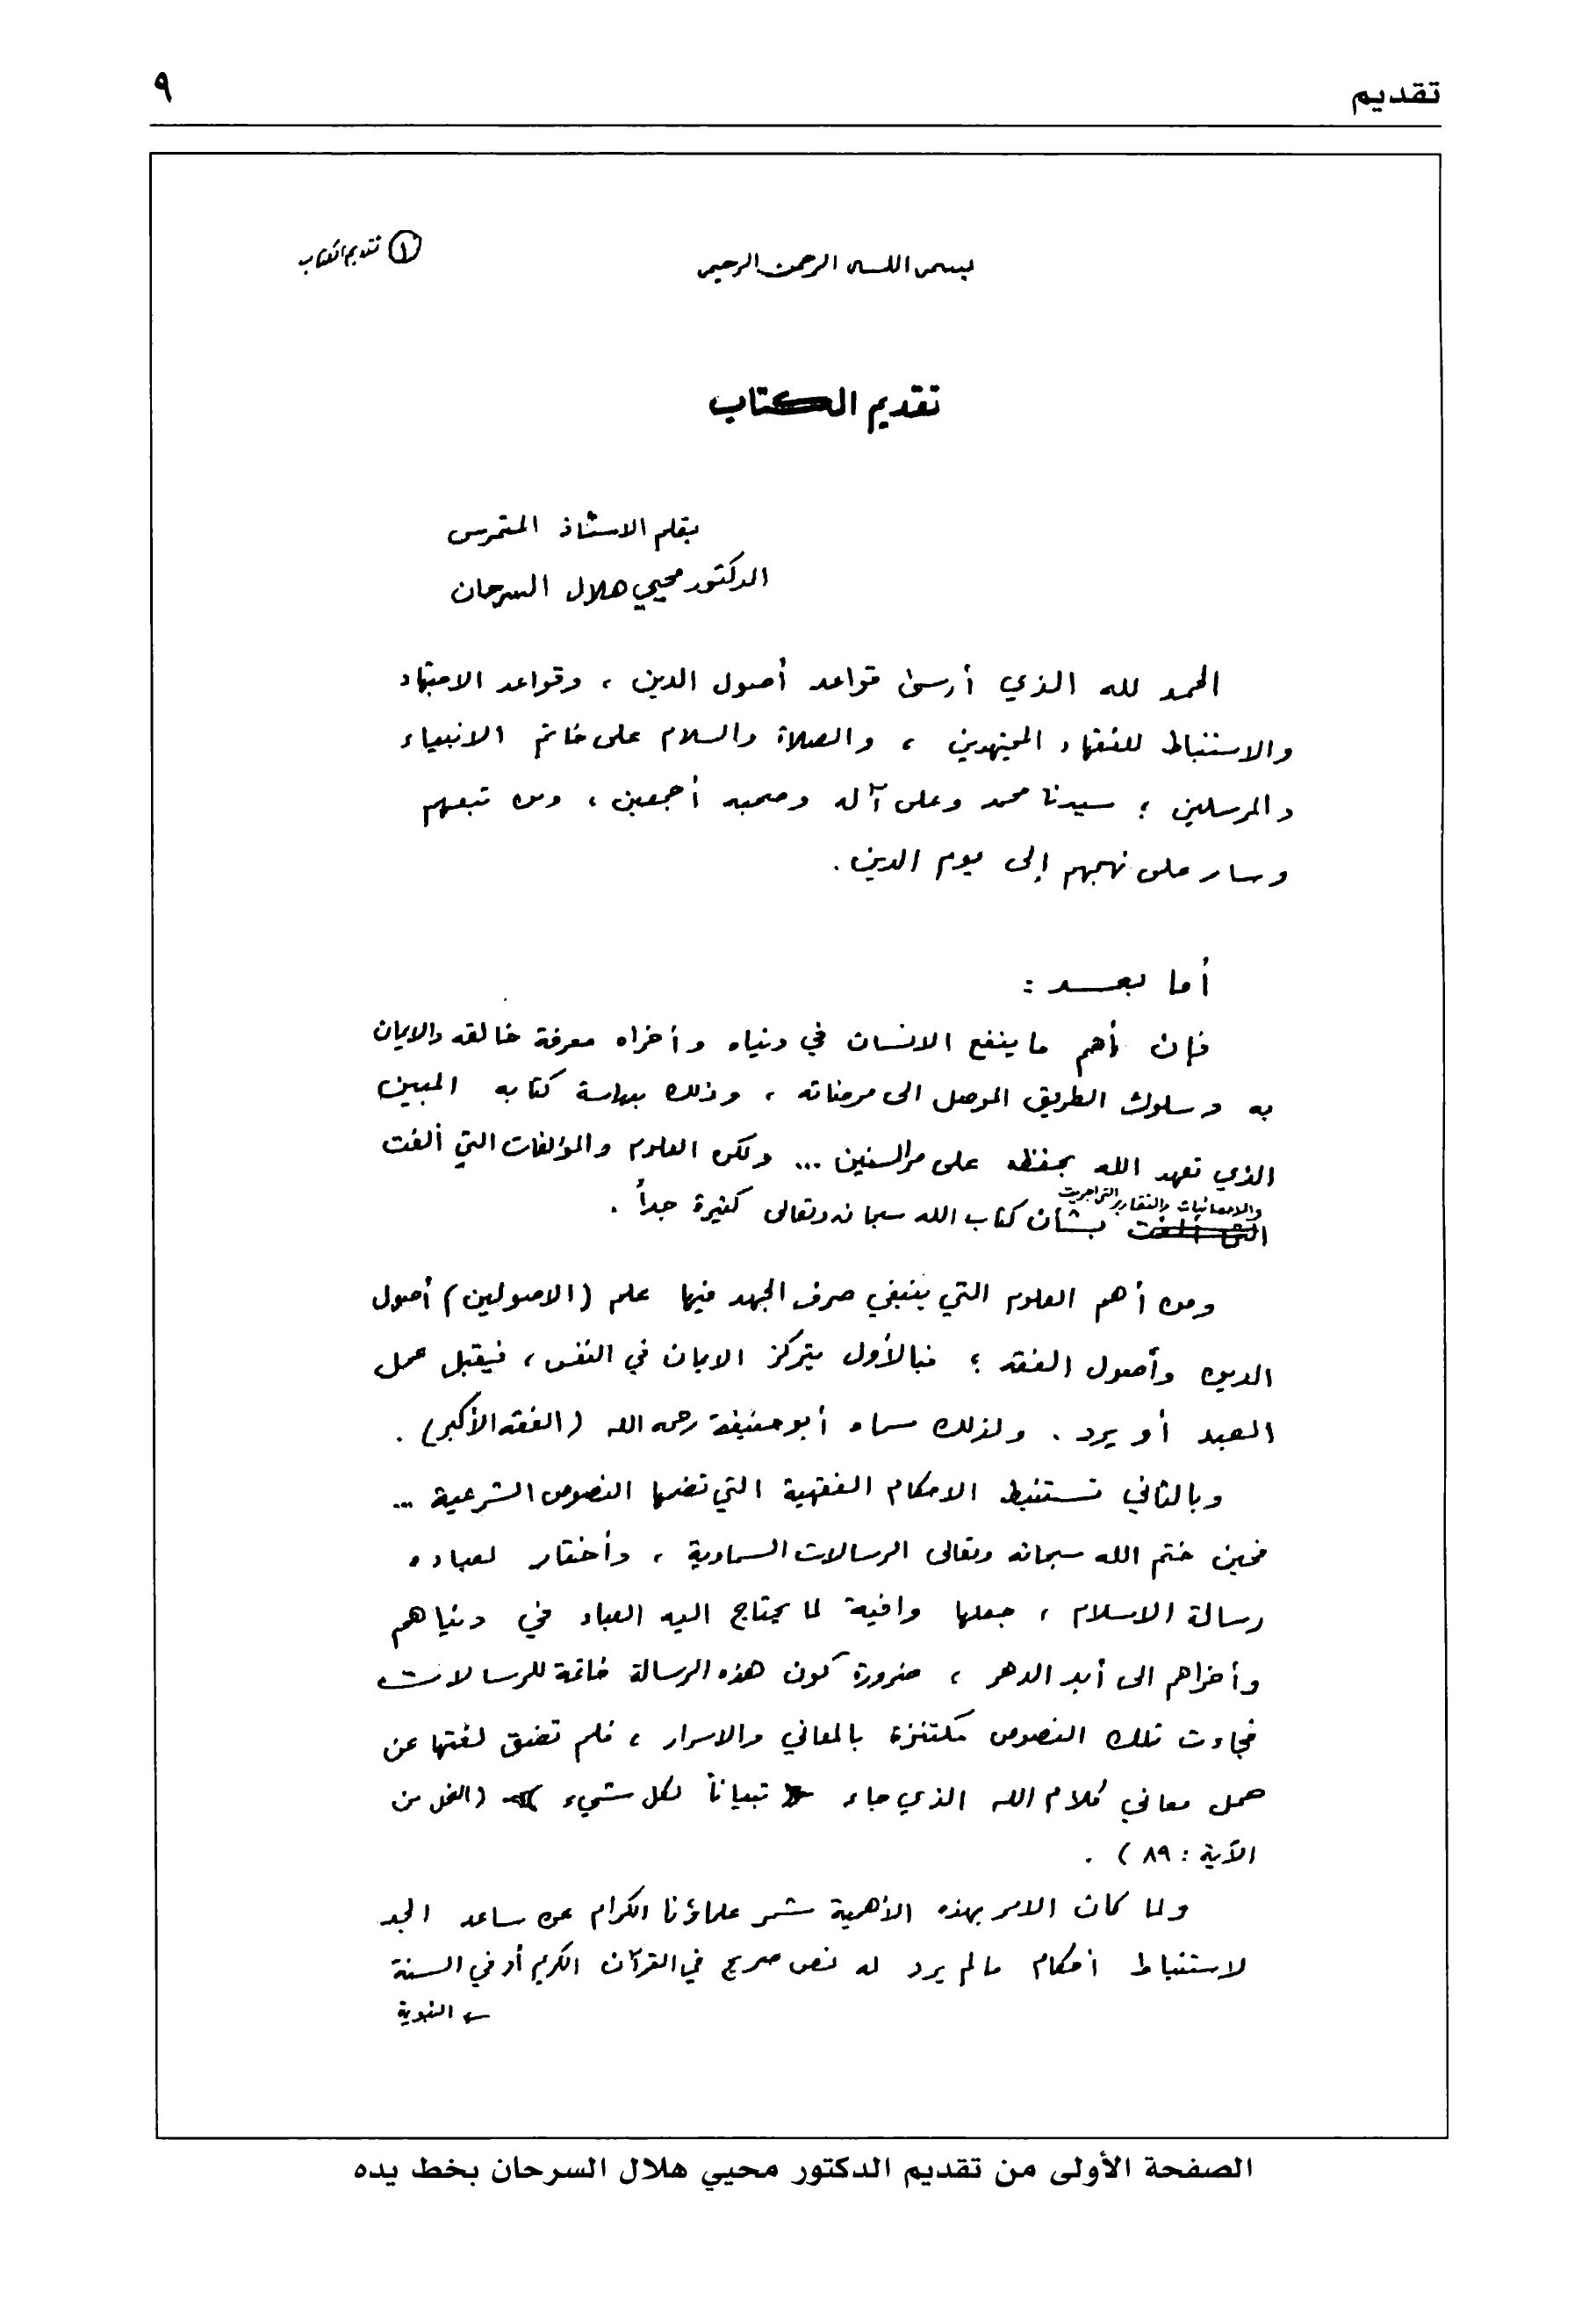 تقديم
٩
① تقديم الكتاب
بسم الله الرحمن الرحيم
تقديم الكتاب
بقلم الاستاذ المتمرس
الدكتور محيي هلال السرحان
الحمد لله الذي أرسى قواعد أصول الدين ، وقواعد الاجتهاد
والاستنباط للفقهاء المجتهدين ، والصلاة والسلام على خاتم الانبياء
والمرسلين ؛ سيدنا محمد وعلى آله وصحبه أجمعين ، ومن تبعهم
وسار على نهجهم إلى يوم الدين .
أما بعد :
فإن أهم ما ينفع الانسان في دنياه وأخراه معرفة خالقه والايمان
به وسلوك الطريق الموصل الى مرضاته ، وذلك بدراسة كتابه المبين
الذي تعهد الله بحفظه على مر السنين ... ولكن العلوم والمؤلفات التي ألفت
والاحصائيات والتقارير التي أجريت
التي ألفت بشأن كتاب الله سبحانه وتعالى كثيرة جداً .
ومن أهم العلوم التي ينبغي صرف الجهد فيها علم (الاصولين) أصول
الدين وأصول الفقه ؛ فبالأول يتركز الايمان في النفس ، فيقبل عمل
العبد أو يرد . ولذلك سماه أبو حنيفة رحمه الله (الفقه الأكبر) .
وبالثاني تستنبط الاحكام الفقهية التي تضمها النصوص الشرعية ...
فحين ختم الله سبحانه وتعالى الرسالات السماوية ، وأختار لعباده
رسالة الاسلام ، جعلها وافية لما يحتاج اليه العباد في دنياهم
وأخراهم الى أبد الدهر ، ضرورة كون هذه الرسالة خاتمة للرسالات
فجاءت تلك النصوص مكتنزة بالمعاني والاسرار ، فلم تضق لغتها عن
حمل معاني كلام الله الذي جاء ﴿ تبياناً لكل شيء ﴾ (النحل من
الآية : ٨٩ ) .
ولما كان الامر بهذه الأهمية شمر علماؤنا الكرام عن ساعد الجد
لاستنباط احكام ما لم يرد له نص صريح في القرآن الكريم أو في السنة
← النبوية
الصفحة الأولى من تقديم الدكتور محيي هلال السرحان بخط يده